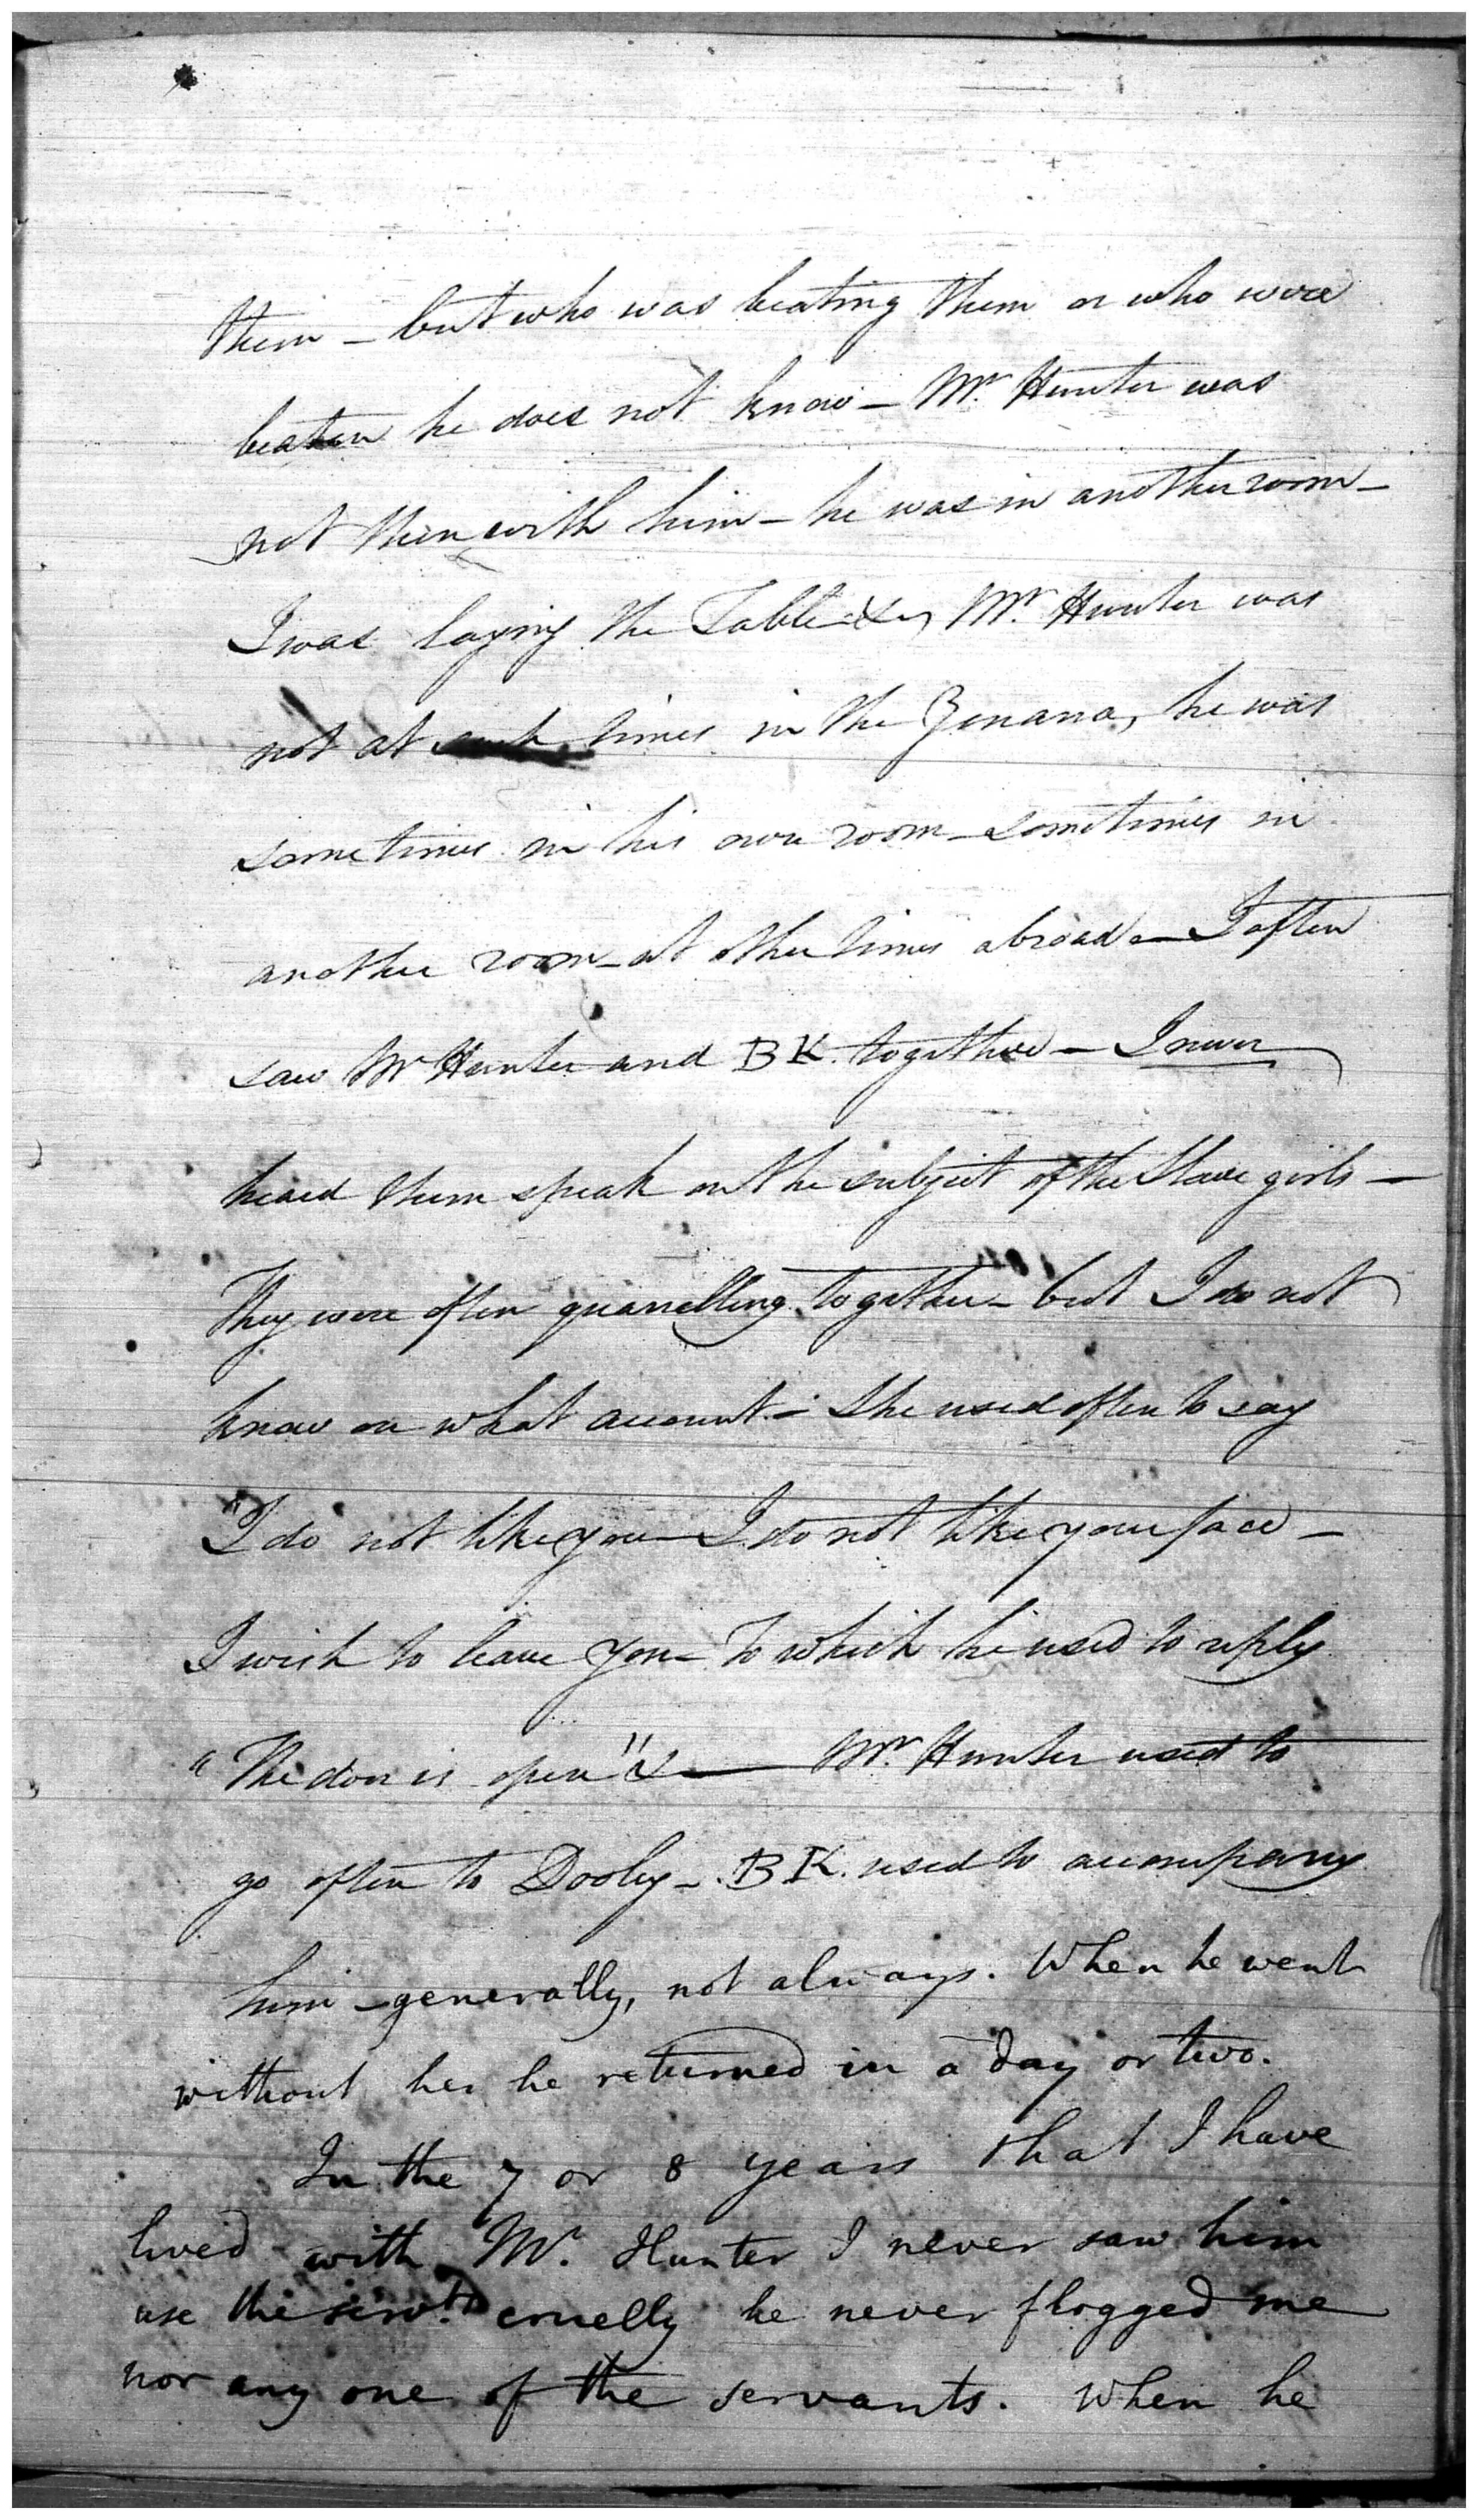 them – but who was beating them or who were
beaten he does not know – Mr. Hunter was
not then with him – he was in another room –
I was laying the Table &c, Mr. Hunter was
not at such times in the Zenana, he was
sometimes in his own room – sometimes in
another room – at other times abroad – I often
saw Mr Hunter and BK. together – I never
heard them speak on the subject of the Slave girls –
They were often quarrelling together – but I do not
know on what account. – She used often to say
"I do not like you – I do not like your face –
I wish to leave you – to which he used to reply
"The door is open" &c — Mr. Hunter used to
go often to Dooly –. BK. used to accompany
him – generally, not always. When he went
without her he returned in a day or two.
In the 7 or 8 years that I have
lived with Mr. Hunter I never saw him
use the servts cruelly he never flogged me
nor any one of the servants. When he